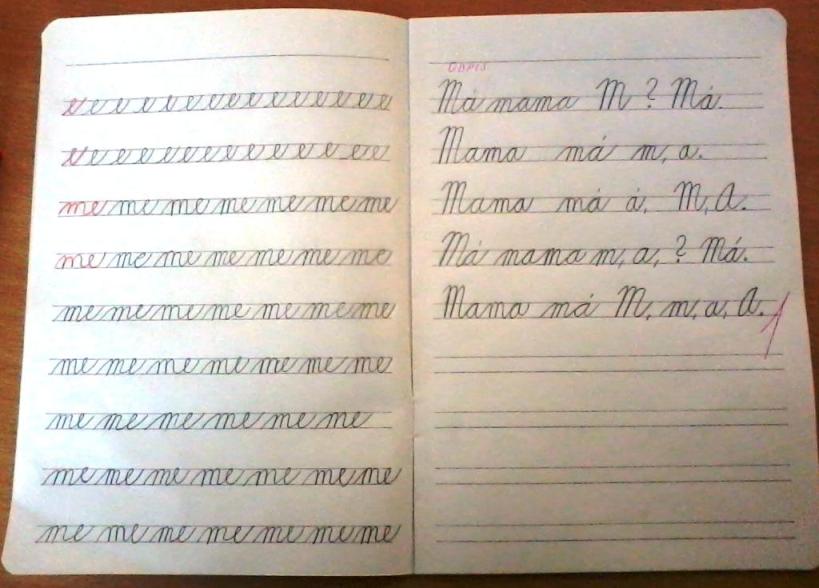 e e e e e e e e e e e e e e e e
e e e e e e e e e e e e e e e
me me me me me me me
me me me me me me me
me me me me me me me
me me me me me me me
me me me me me me
me me me me me me me
me me me me me me me
OPIS
Má mama M? Má.
Mama má m, a.
Mama má á, M, A.
Má mama m, a, ? Má.
Mama má M, m, a, A. 1